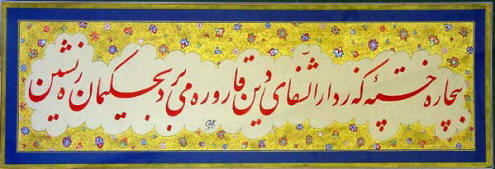 بیچاره خستهٔ که ز دار الشّفای دین قاروره می برد بحکیمان ره نشین